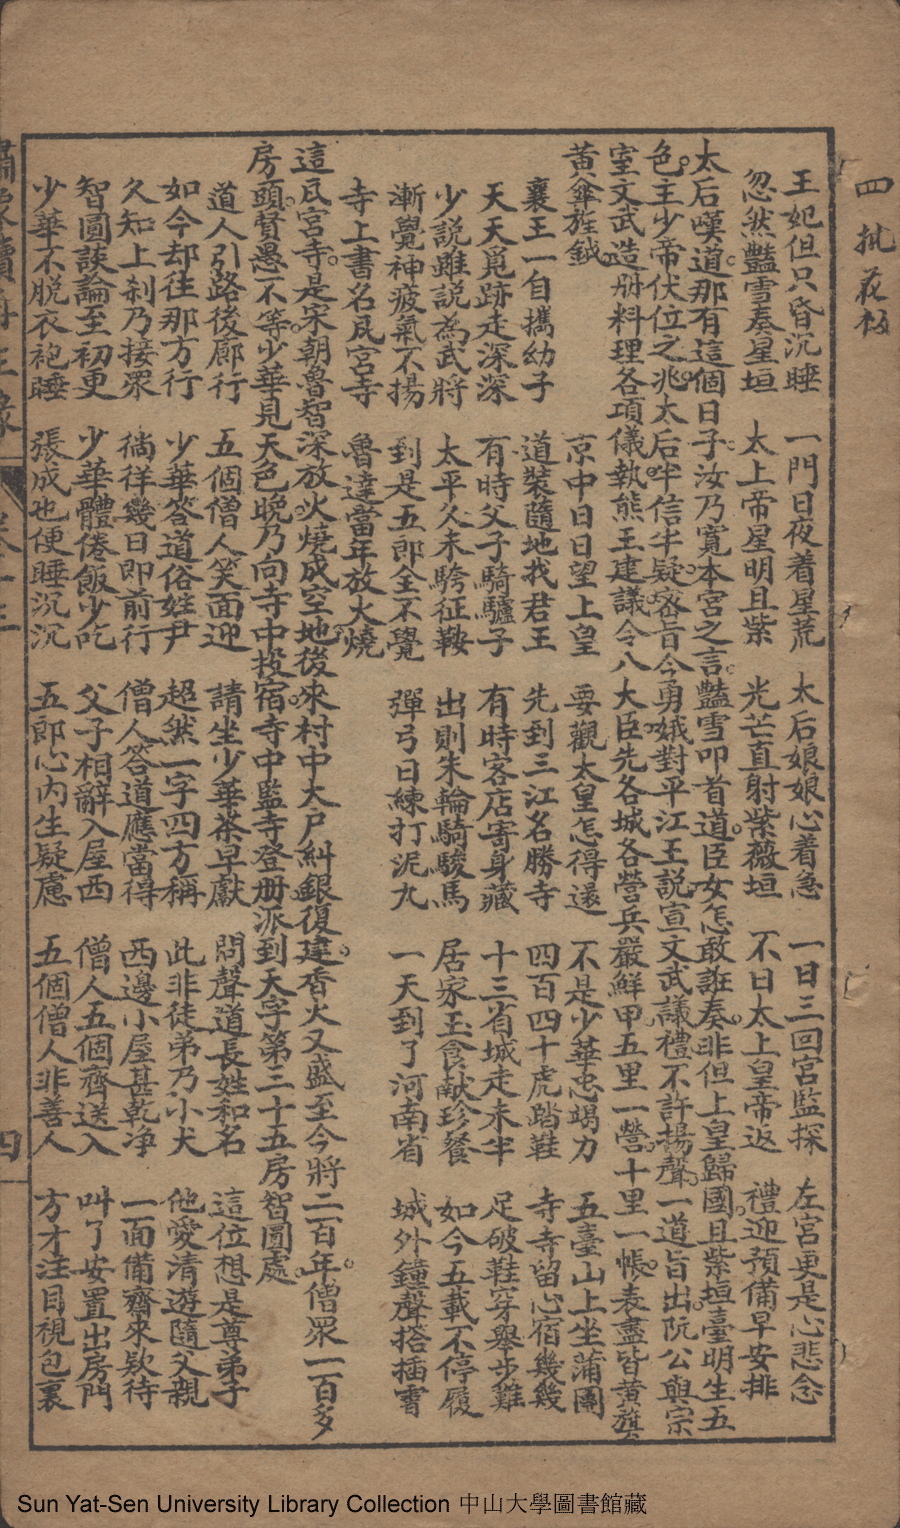 四批花板
王妃但只昏沉睡　一門日夜着星荒　太后娘娘心着急　一日三回宮監探　左宮更是心悲念
忽然豔雪奏星垣　太上帝星明且紫　光芒直射紫薇垣　不日太上皇帝返　禮迎預備早安排
太后嘆道。那有這個日子。汝乃寬本宮之言。豔雪叩首道。臣女怎敢誑奏。非但上皇歸國。且紫垣臺明生五
色。主少帝伏位之兆。太后半信半疑。密旨今勇娥對平江王説。宣文武議禮。不許揚聲。一道旨出。阮公與宗
室文武造册料理各項儀執熊王建議令八大臣先各城各營兵嚴鮮甲五里一營。十里一帳。表盡皆黄旗
黄傘旌鉞
襄王一自攜幼子　京中日日望上皇　要觀太皇怎得還　不是少華忠竭力　五臺山上坐蒲團
天天覓跡走深深　道裝隨地找君王　先到三江名勝寺　四百四十虎踏鞋　寺寺留心宿幾幾
少説雖説為武將　有時父子騎驢子　有時客店寄身藏　十三省城走未半　足破鞋穿舉步難
漸覺神疲氣不揚　太平久未騎征鞍　出則朱輪騎駿馬　居家玉食献珍餐　如今五載不停履
到是五郎全不覺　彈弓日練打泥九　一天到了河南省　城外鐘聲搭插雲
寺上書名瓦宮寺　魯達當年放火燒
這瓦宮寺。是宋朝魯智深放火。燒成空地。後來村中大戸糾銀復建。香火又盛。至今將二百年。僧眾一百多
房頭。賢愚不等。少華見天色晚。乃向寺中投宿。寺中監寺登册。派到天字第三十五房智圓處。
道人引路後廊行　五個僧人笑面迎　請坐少華茶早獻　問聲道長姓和名　這位想是尊弟子
如今却往那方行　少華答道俗姓尹　超然一字四方稱　此非徒弟乃小犬　他愛清遊隨父親
久知上刹乃接眾　徜徉幾日即前行　僧人答道應當得　西邊小屋甚乾净　一面備齋來欵待
智圓談論至初更　少華體倦飯少吃　父子相辭入屋西　僧人五個齊送入　叫了安置出房門
少華不脱衣袍睡　張成也便睡沉沉　五郎心内生疑慮　五個僧人非善人　方才注目視包裹
四
Sun Yat-Sen University Library Collection 中山大學圖書館藏